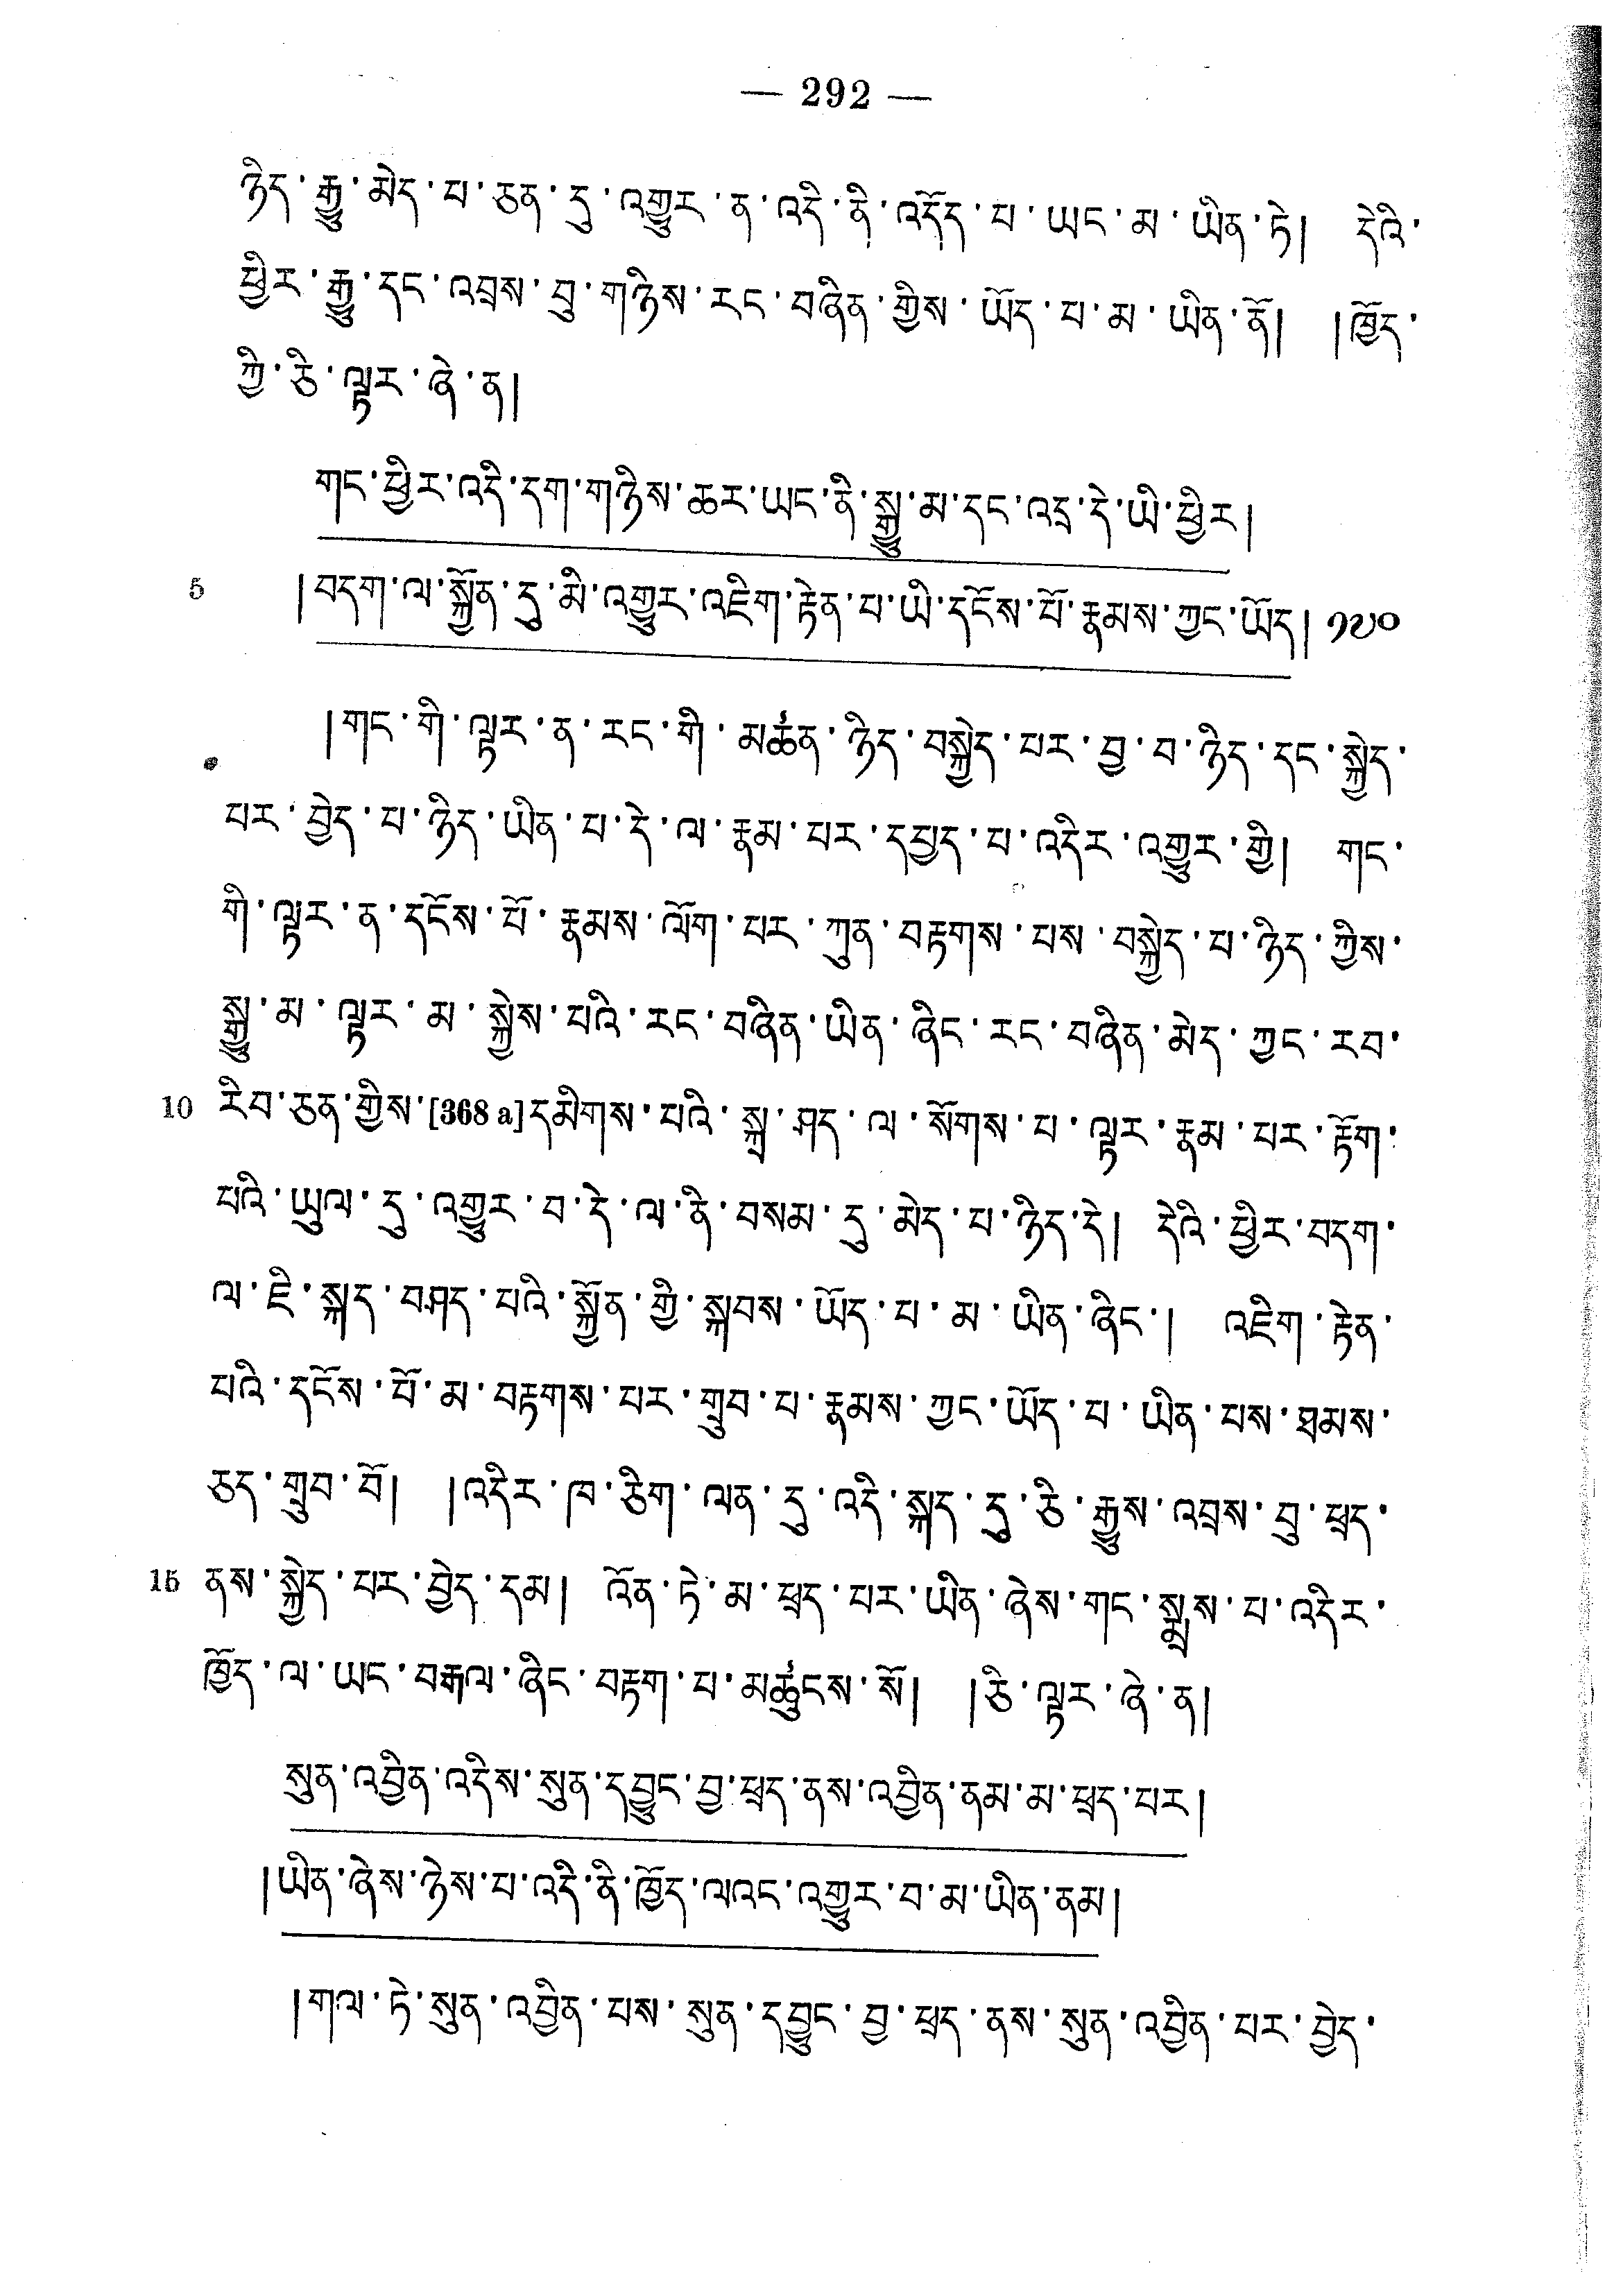 — 292 —
ཉིད་རྒྱུ་མེད་པ་ཅན་དུ་འགྱུར་ན་འདི་ནི་འདོད་པ་ཡང་མ་ཡིན་ཏེ། དེའི་
ཕྱིར་རྒྱུ་དང་འབྲས་བུ་གཉིས་རང་བཞིན་གྱིས་ཡོད་པ་མ་ཡིན་ནོ། །ཁྱོད་
ཀྱི་ཅི་ལྟར་ཞེ་ན།
གང་ཕྱིར་འདི་དག་གཉིས་ཆར་ཡང་ནི་སྒྱུ་མ་དང་འདྲ་དེ་ཡི་ཕྱིར།
5 །བདག་ལ་སྐྱོན་དུ་མི་འགྱུར་འཇིག་རྟེན་པ་ཡི་དངོས་པོ་རྣམས་ཀྱང་ཡོད། ༡༧༠
།གང་གི་ལྟར་ན་རང་གི་མཚན་ཉིད་བསྐྱེད་པར་བྱ་བ་ཉིད་དང་སྐྱེད་
པར་བྱེད་པ་ཉིད་ཡིན་པ་དེ་ལ་རྣམ་པར་དཔྱད་པ་འདིར་འགྱུར་གྱི། གང་
གི་ལྟར་ན་དངོས་པོ་རྣམས་ལོག་པར་ཀུན་བརྟགས་པས་བསྐྱེད་པ་ཉིད་ཀྱིས་
སྒྱུ་མ་ལྟར་མ་སྐྱེས་པའི་རང་བཞིན་ཡིན་ཞིང་རང་བཞིན་མེད་ཀྱང་རབ་
10 རིབ་ཅན་གྱིས་[368 a]དམིགས་པའི་སྐྲ་ཤད་ལ་སོགས་པ་ལྟར་རྣམ་པར་རྟོག་
པའི་ཡུལ་དུ་འགྱུར་བ་དེ་ལ་ནི་བསམ་དུ་མེད་པ་ཉིད་དེ། དེའི་ཕྱིར་བདག་
ལ་ཇི་སྐད་བཤད་པའི་སྐྱོན་གྱི་སྐབས་ཡོད་པ་མ་ཡིན་ཞིང་། འཇིག་རྟེན་
པའི་དངོས་པོ་མ་བརྟགས་པར་གྲུབ་པ་རྣམས་ཀྱང་ཡོད་པ་ཡིན་པས་ཐམས་
ཅད་གྲུབ་བོ། །འདིར་ཁ་ཅིག་ལན་དུ་འདི་སྐད་དུ་ཅི་རྒྱུས་འབྲས་བུ་ཕྲད་
15 ནས་སྐྱེད་པར་བྱེད་དམ། འོན་ཏེ་མ་ཕྲད་པར་ཡིན་ཞེས་གང་སྨྲས་པ་འདིར་
ཁྱོད་ལ་ཡང་བརྒལ་ཞིང་བརྟག་པ་མཚུངས་སོ། །ཅི་ལྟར་ཞེ་ན།
སུན་འབྱིན་འདིས་སུན་དབྱུང་བྱ་ཕྲད་ནས་འབྱིན་ནམ་མ་ཕྲད་པར།
།ཡིན་ཞེས་ཉེས་པ་འདི་ནི་ཁྱོད་ལའང་འགྱུར་བ་མ་ཡིན་ནམ།
།གལ་ཏེ་སུན་འབྱིན་པས་སུན་དབྱུང་བྱ་ཕྲད་ནས་སུན་འབྱིན་པར་བྱེད་